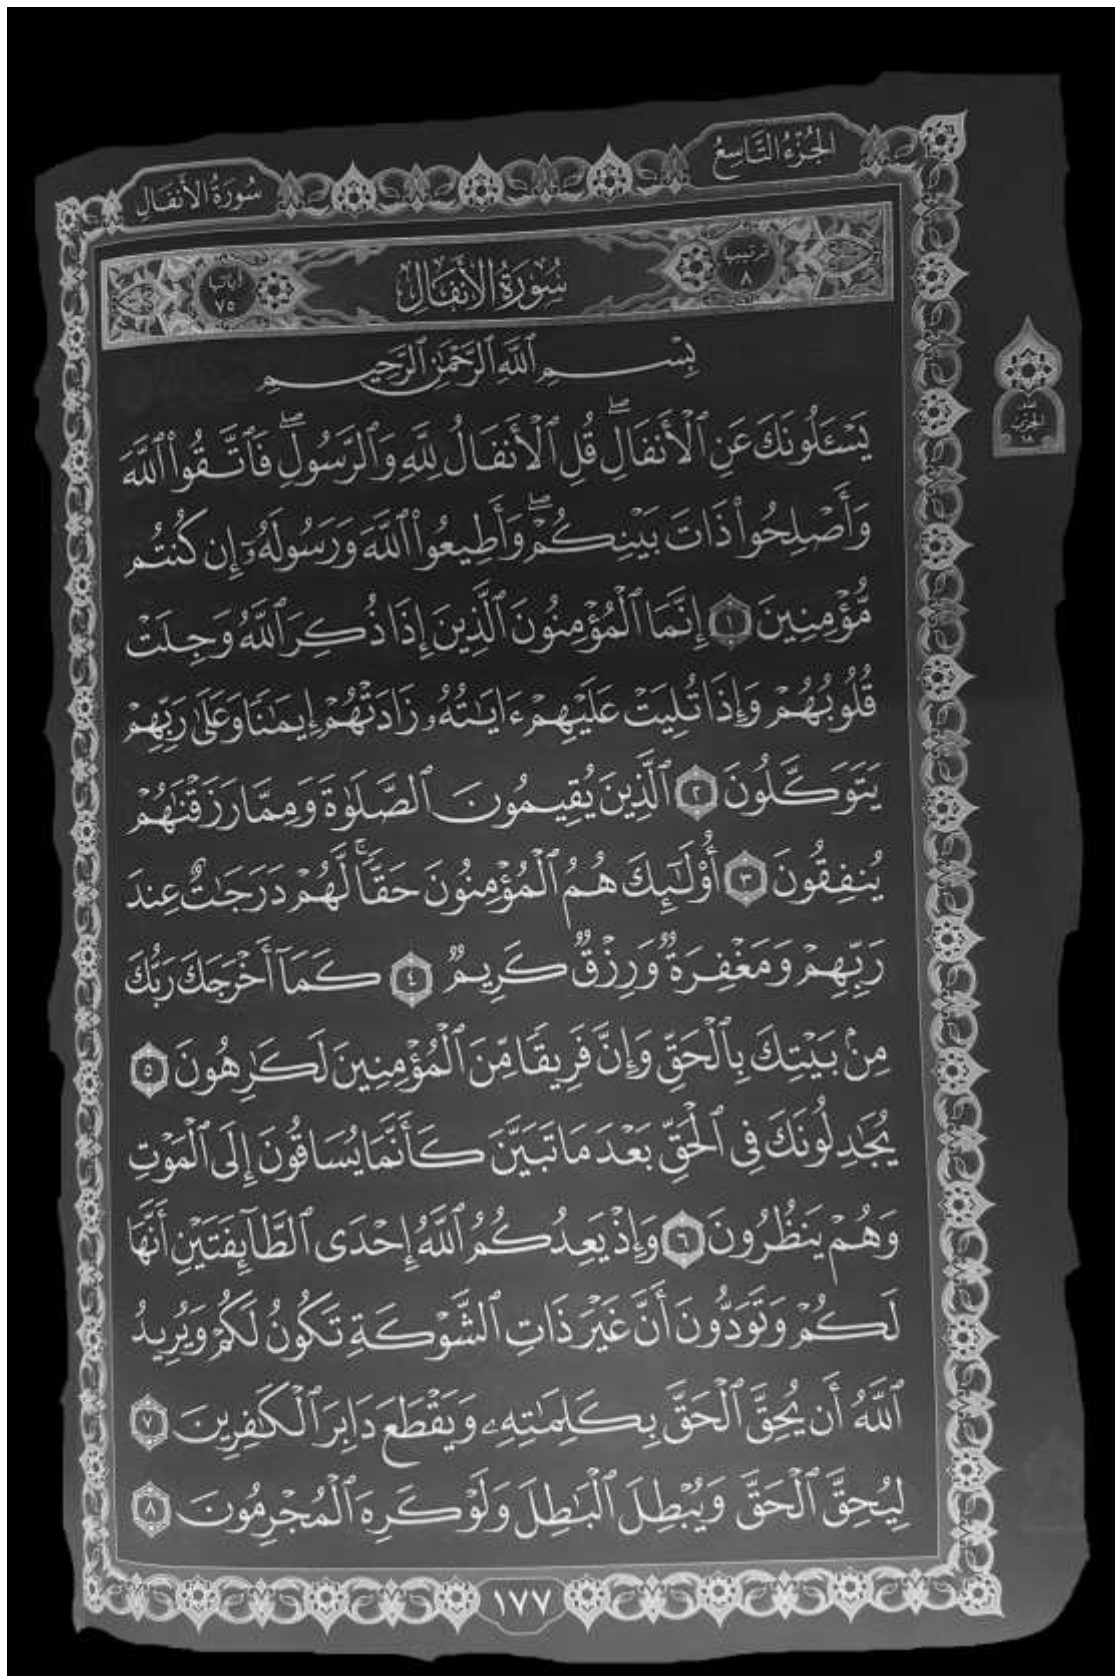 الجُزْءُ التَّاسِعُ
سُورَةُ الأَنفَالِ
ترتيبها
٨
سُورَةُ الأَنفَالِ
آياتها
٧٥
بِسْمِ ٱللَّهِ ٱلرَّحْمَٰنِ ٱلرَّحِيمِ
يَسْـَٔلُونَكَ عَنِ ٱلْأَنفَالِۖ قُلِ ٱلْأَنفَالُ لِلَّهِ وَٱلرَّسُولِۖ فَٱتَّقُوا۟ ٱللَّهَ
وَأَصْلِحُوا۟ ذَاتَ بَيْنِكُمْۖ وَأَطِيعُوا۟ ٱللَّهَ وَرَسُولَهُۥٓ إِن كُنتُم
مُّؤْمِنِينَ ١ إِنَّمَا ٱلْمُؤْمِنُونَ ٱلَّذِينَ إِذَا ذُكِرَ ٱللَّهُ وَجِلَتْ
قُلُوبُهُمْ وَإِذَا تُلِيَتْ عَلَيْهِمْ ءَايَٰتُهُۥ زَادَتْهُمْ إِيمَٰنًا وَعَلَىٰ رَبِّهِمْ
يَتَوَكَّلُونَ ٢ ٱلَّذِينَ يُقِيمُونَ ٱلصَّلَوٰةَ وَمِمَّا رَزَقْنَٰهُمْ
يُنفِقُونَ ٣ أُو۟لَٰٓئِكَ هُمُ ٱلْمُؤْمِنُونَ حَقًّاۚ لَّهُمْ دَرَجَٰتٌ عِندَ
رَبِّهِمْ وَمَغْفِرَةٌ وَرِزْقٌ كَرِيمٌ ٤ كَمَآ أَخْرَجَكَ رَبُّكَ
مِنۢ بَيْتِكَ بِٱلْحَقِّ وَإِنَّ فَرِيقًا مِّنَ ٱلْمُؤْمِنِينَ لَكَٰرِهُونَ ٥
يُجَٰدِلُونَكَ فِى ٱلْحَقِّ بَعْدَ مَا تَبَيَّنَ كَأَنَّمَا يُسَاقُونَ إِلَى ٱلْمَوْتِ
وَهُمْ يَنظُرُونَ ٦ وَإِذْ يَعِدُكُمُ ٱللَّهُ إِحْدَى ٱلطَّآئِفَتَيْنِ أَنَّهَا
لَكُمْ وَتَوَدُّونَ أَنَّ غَيْرَ ذَاتِ ٱلشَّوْكَةِ تَكُونُ لَكُمْ وَيُرِيدُ
ٱللَّهُ أَن يُحِقَّ ٱلْحَقَّ بِكَلِمَٰتِهِۦ وَيَقْطَعَ دَابِرَ ٱلْكَٰفِرِينَ ٧
لِيُحِقَّ ٱلْحَقَّ وَيُبْطِلَ ٱلْبَٰطِلَ وَلَوْ كَرِهَ ٱلْمُجْرِمُونَ ٨
١٧٧